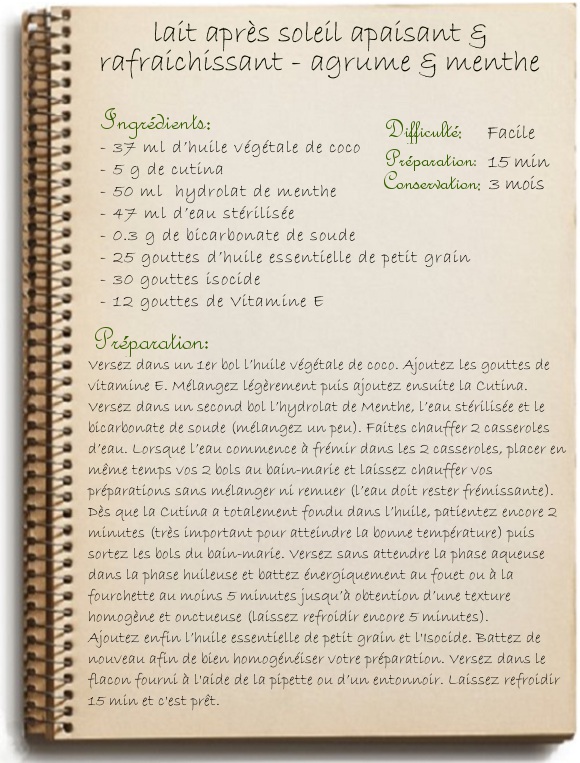 lait après soleil apaisant &
rafraichissant - agrume & menthe
Ingrédients:
- 37 ml d'huile végétale de coco
- 5 g de cutina
- 50 ml hydrolat de menthe
- 47 ml d'eau stérilisée
- 0.3 g de bicarbonate de soude
- 25 gouttes d'huile essentielle de petit grain
- 30 gouttes isocide
- 12 gouttes de Vitamine E
Difficulté: Facile
Préparation: 15 min
Conservation: 3 mois
Préparation:
Versez dans un 1er bol l'huile végétale de coco. Ajoutez les gouttes de
vitamine E. Mélangez légèrement puis ajoutez ensuite la Cutina.
Versez dans un second bol l'hydrolat de Menthe, l'eau stérilisée et le
bicarbonate de soude (mélangez un peu). Faites chauffer 2 casseroles
d'eau. Lorsque l'eau commence à frémir dans les 2 casseroles, placer en
même temps vos 2 bols au bain-marie et laissez chauffer vos
préparations sans mélanger ni remuer (l'eau doit rester frémissante).
Dès que la Cutina a totalement fondu dans l'huile, patientez encore 2
minutes (très important pour atteindre la bonne température) puis
sortez les bols du bain-marie. Versez sans attendre la phase aqueuse
dans la phase huileuse et battez énergiquement au fouet ou à la
fourchette au moins 5 minutes jusqu'à obtention d'une texture
homogène et onctueuse (laissez refroidir encore 5 minutes).
Ajoutez enfin l'huile essentielle de petit grain et l'Isocide. Battez de
nouveau afin de bien homogénéiser votre préparation. Versez dans le
flacon fourni à l'aide de la pipette ou d'un entonnoir. Laissez refroidir
15 min et c'est prêt.